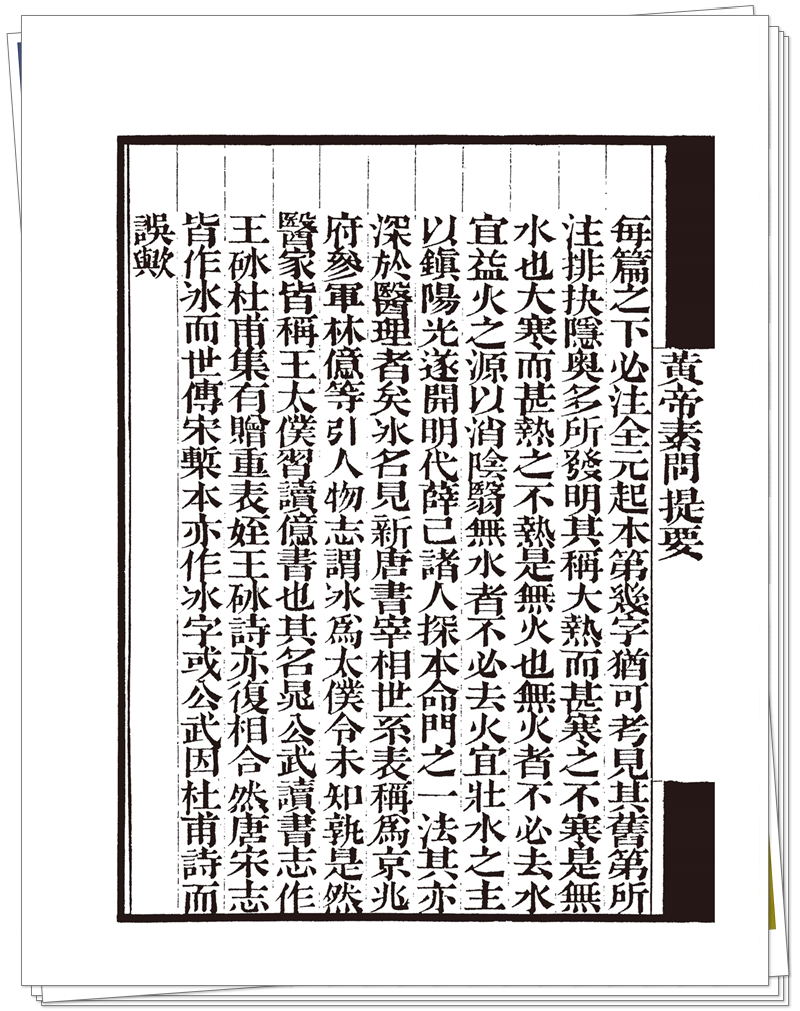 黄帝素問提要
每篇之下必注全元起本第幾字猶可考見其舊第所
注排抉隱奧多所發明其稱大熱而甚寒之不寒是無
水也大寒而甚熱之不熱是無火也無火者不必去水
宜益火之源以消陰翳無水者不必去火宜壯水之主
以鎮陽光遂開明代薛己諸人探本命門之一法其亦
深於醫理者矣氷名見新唐書宰相世系表稱爲京兆
府參軍林億等引人物志謂氷爲太僕令未知孰是然
醫家皆稱王太僕習讀億書也其名晁公武讀書志作
王砅杜甫集有贈重表姪王砅詩亦復相合然唐宋志
皆作氷而世傳宋槧本亦作氷字或公武因杜甫詩而
誤歟